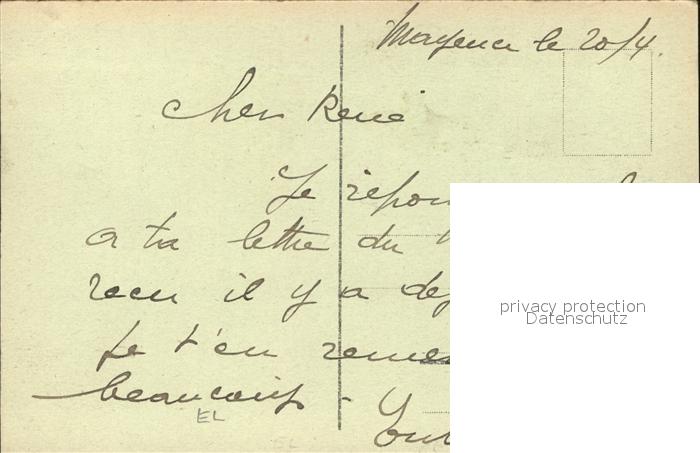 Mayence le 20/4.
Cher René
Je
a ta lettre du
recu il y a
Je t'en
beaucoup -
EL
privacy protection
Datenschutz